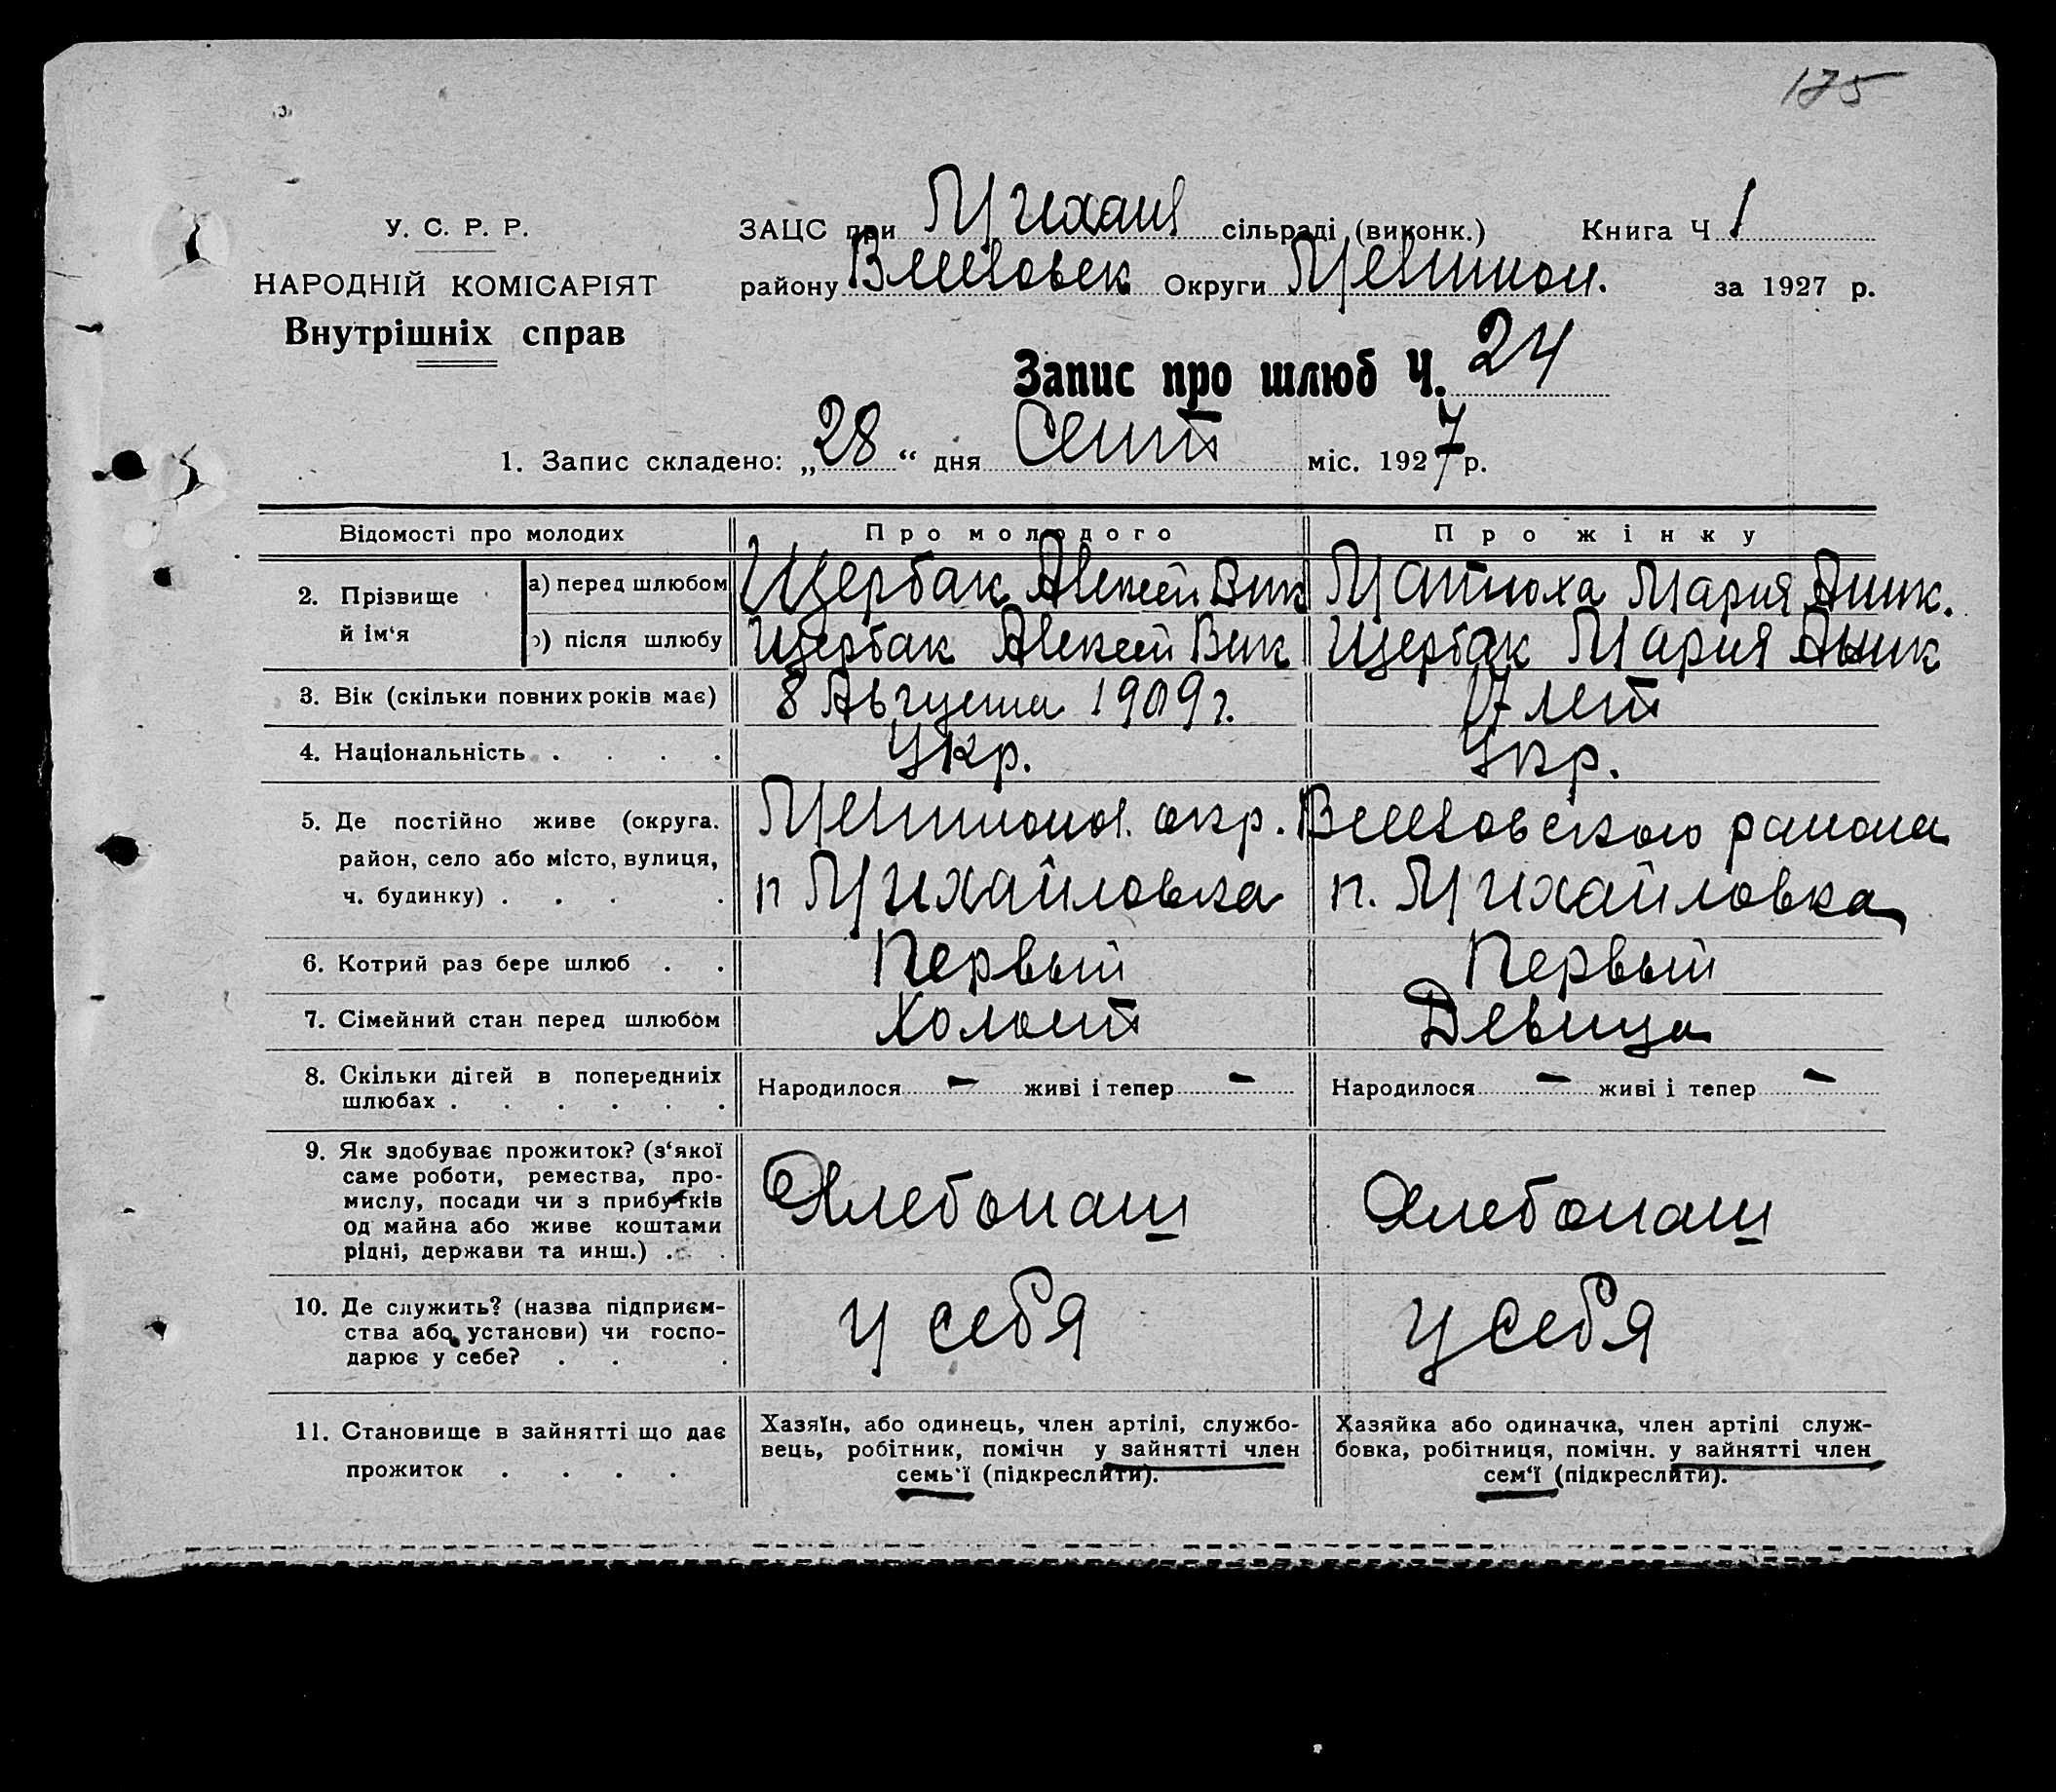 175
У. С. Р. Р.
НАРОДНІЙ КОМІСАРІЯТ
Внутрішніх справ
ЗАЦС при Михайл сільраді (виконк.) Книга Ч 1
району Веселовск Округи Мелитоп. за 1927 р.
Запис про шлюб Ч. 24
1. Запис складено: „28“ дня Сент міс. 1927 р.
Відомості про молодих Про молодого Про жінку
2. Прізвище й ім‘я
а) перед шлюбом Щербак Алексей Вик Матюха Мария
б) після шлюбу Щербак Алексей Вик Щербак Мария
3. Вік (скільки повних років має) 8 Августа 1909 г. 17 лет
4. Національність . . . . Укр. Укр.
5. Де постійно живе (округа. Мелитопол. окр. Веселовского района
район, село або місто, вулиця, п Михайловка п. Михайловка
ч. будинку) . . . .
6. Котрий раз бере шлюб . . Первый Первый
7. Сімейний стан перед шлюбом Холост Девица
8. Скільки дітей в попередниіх Народилося - живі і тепер - Народилося - живі і тепер -
шлюбах . . . . . .
9. Як здобуває прожиток? (з‘якої
саме роботи, ремества, про-
мислу, посади чи з прибутків Хлебопаш Хлебопаш
од майна або живе коштами
рідні, держави та инш.) . . .
10. Де служить? (назва підприєм-
ства або установи) чи госпо- у себя у себя
дарює у себе? . . .
11. Становище в зайнятті що дає
прожиток . . . .
Хазяїн, або одинець, член артілі, службо-
вець, робітник, помічн у зайнятті член
семь‘ї (підкреслити).
Хазяйка або одиначка, член артілі служ-
бовка, робітниця, помічн. у зайнятті член
сем‘ї (підкреслити).